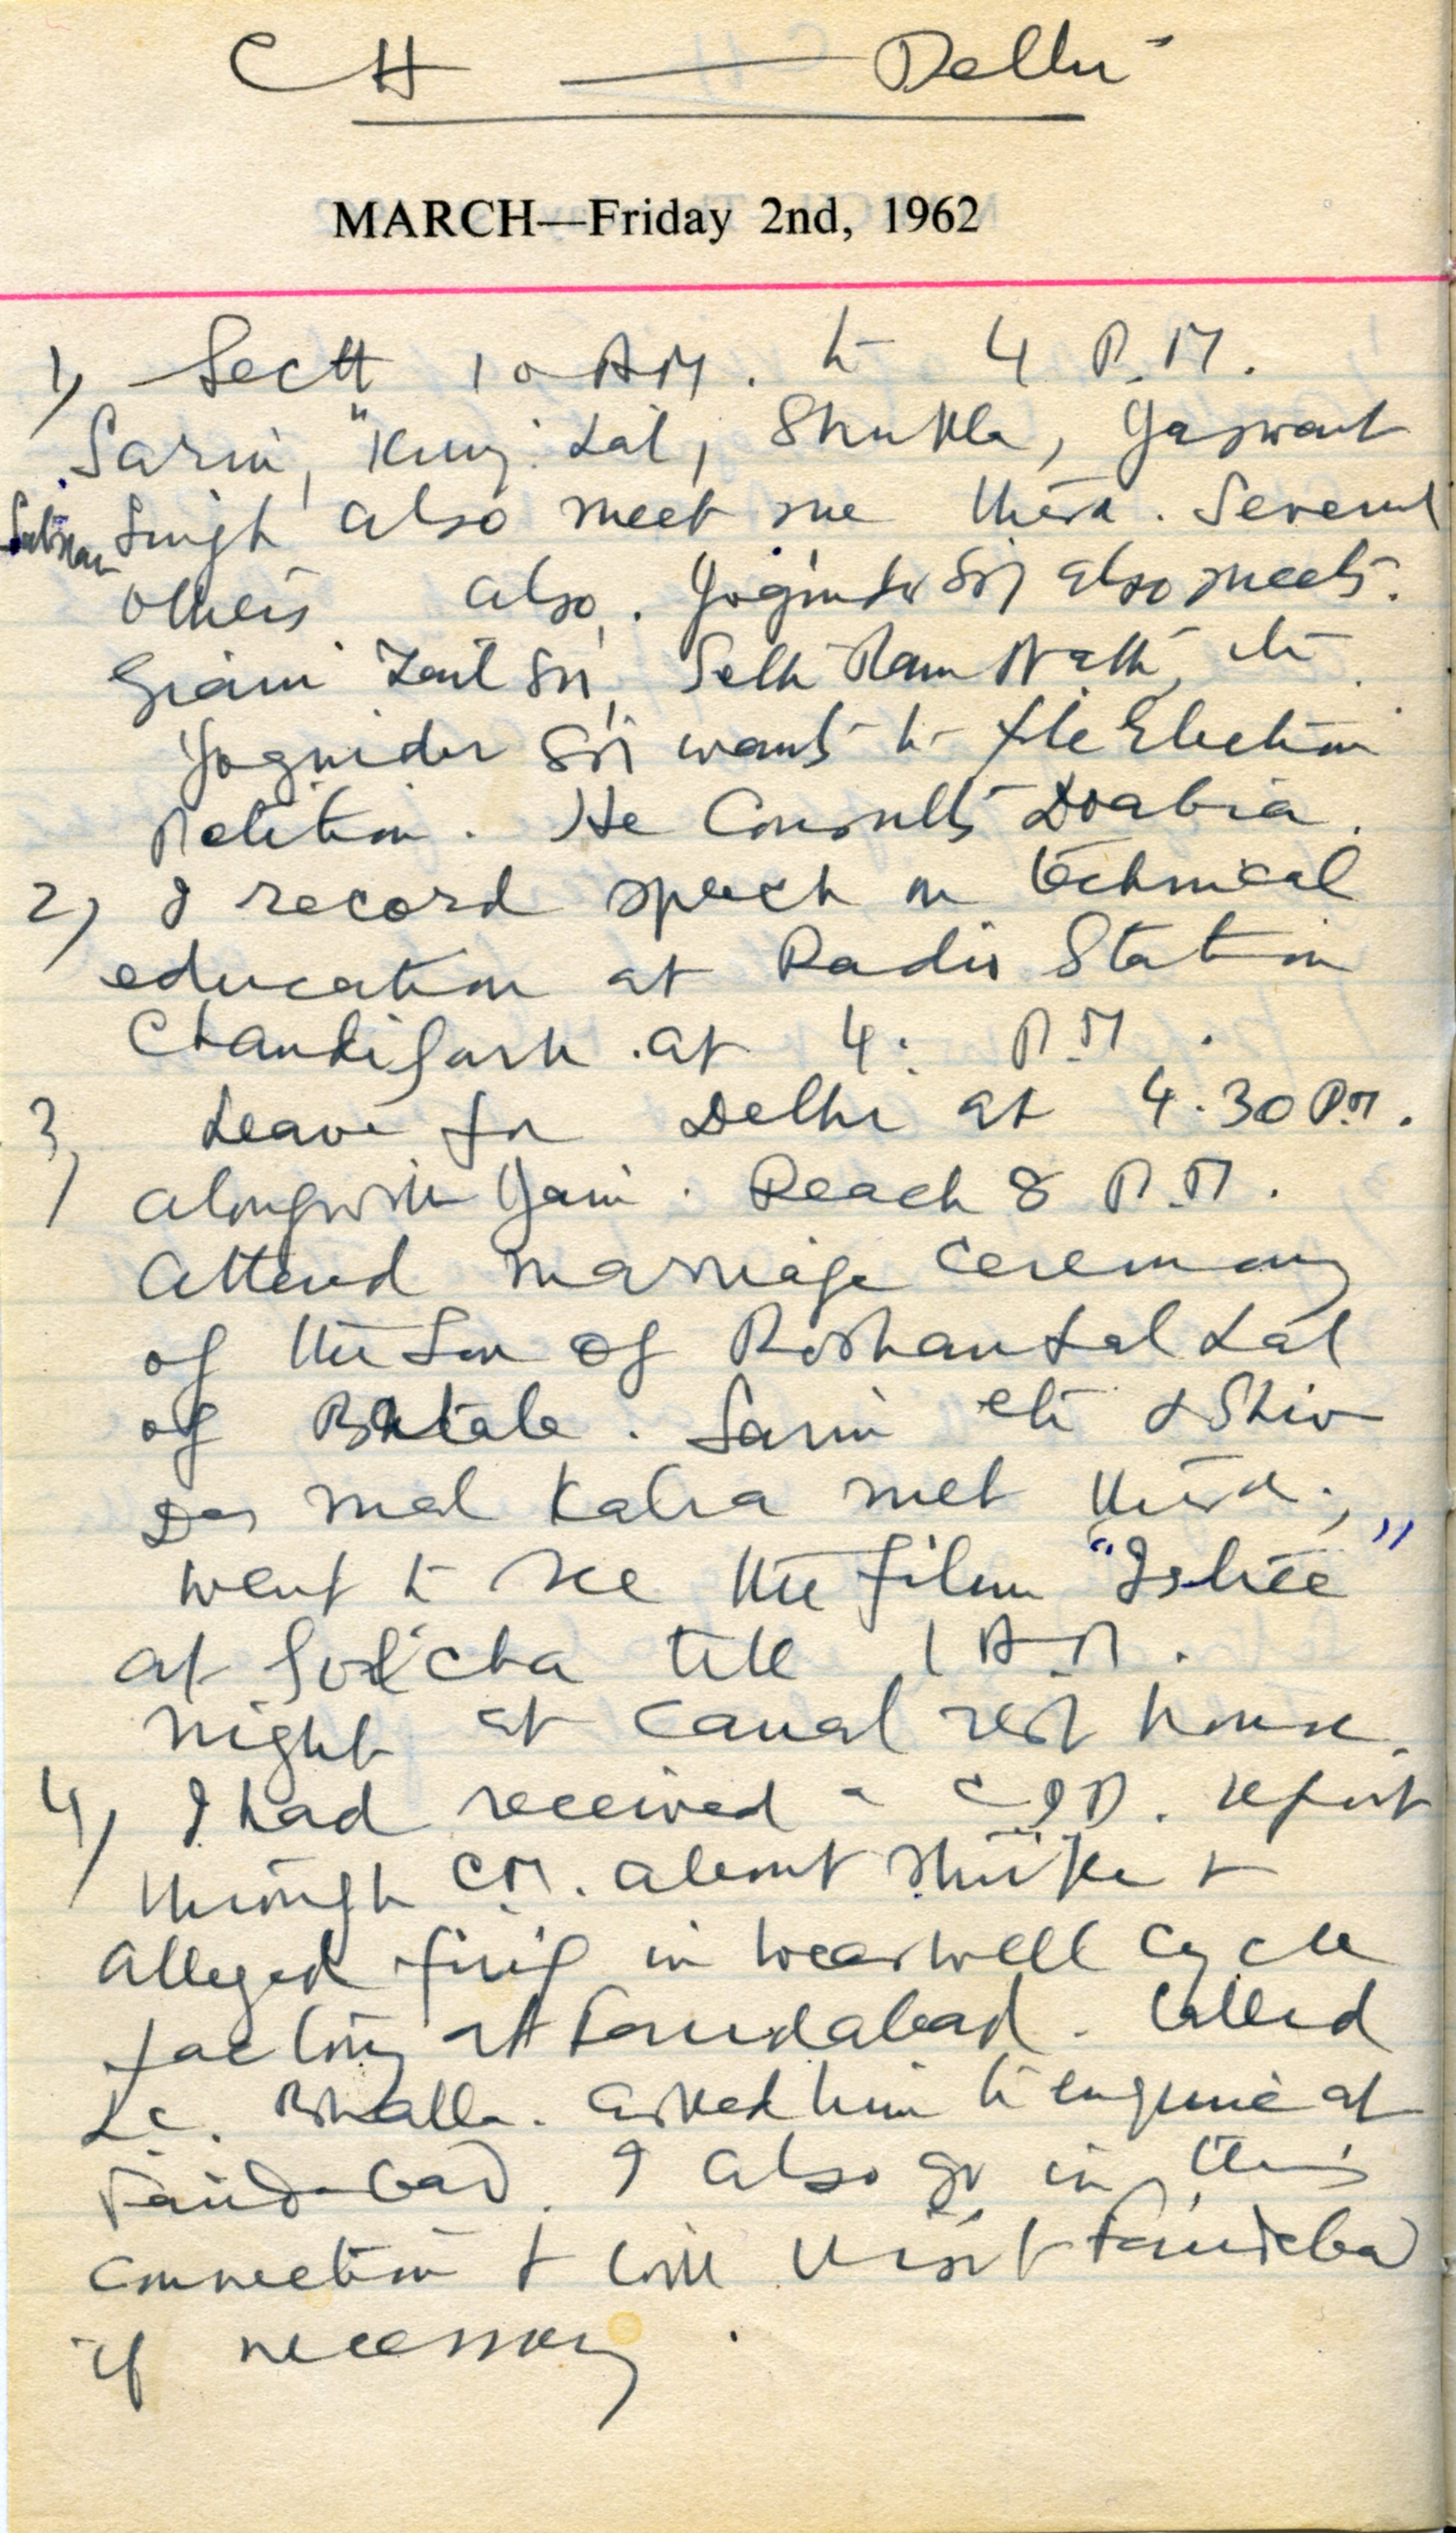 CH — Delhi
MARCH—Friday 2nd, 1962
1) Sectt 10 AM. to 4 P.M.
Sarin, Kunj Lal, Shukla, Jaswant
Singh also meet me there. Several
others also. Yoginder Sin also meets.
Giani Zail Sin, Seth Ram Nath, etc.
Yoginder Sin wants to file Election
Petition. He Consults Doabia.
2) I record speech on technical
education at Radio Station
Chandigarh at 4: P.M.
3) Leave for Delhi at 4.30 P.M.
alongwith Jain. Reach 8 P.M.
Attend marriage ceremony
of the Son of Roshan Lal Lal
of Batala. Sarin etc & Shiv
Das Mal Kalra met there.
went to see the film "
at Golcha till 1 A.M.
Night at Canal rest house.
4) I had received a C.I.D. report
through C.M. about Strike &
alleged firing in wearwell Cycle
factory at Faridabad. Called
L.C. Bhalla. Asked him to enquire at
Faridabad. I also go in this
connection & will visit Faridabad
if necessary.